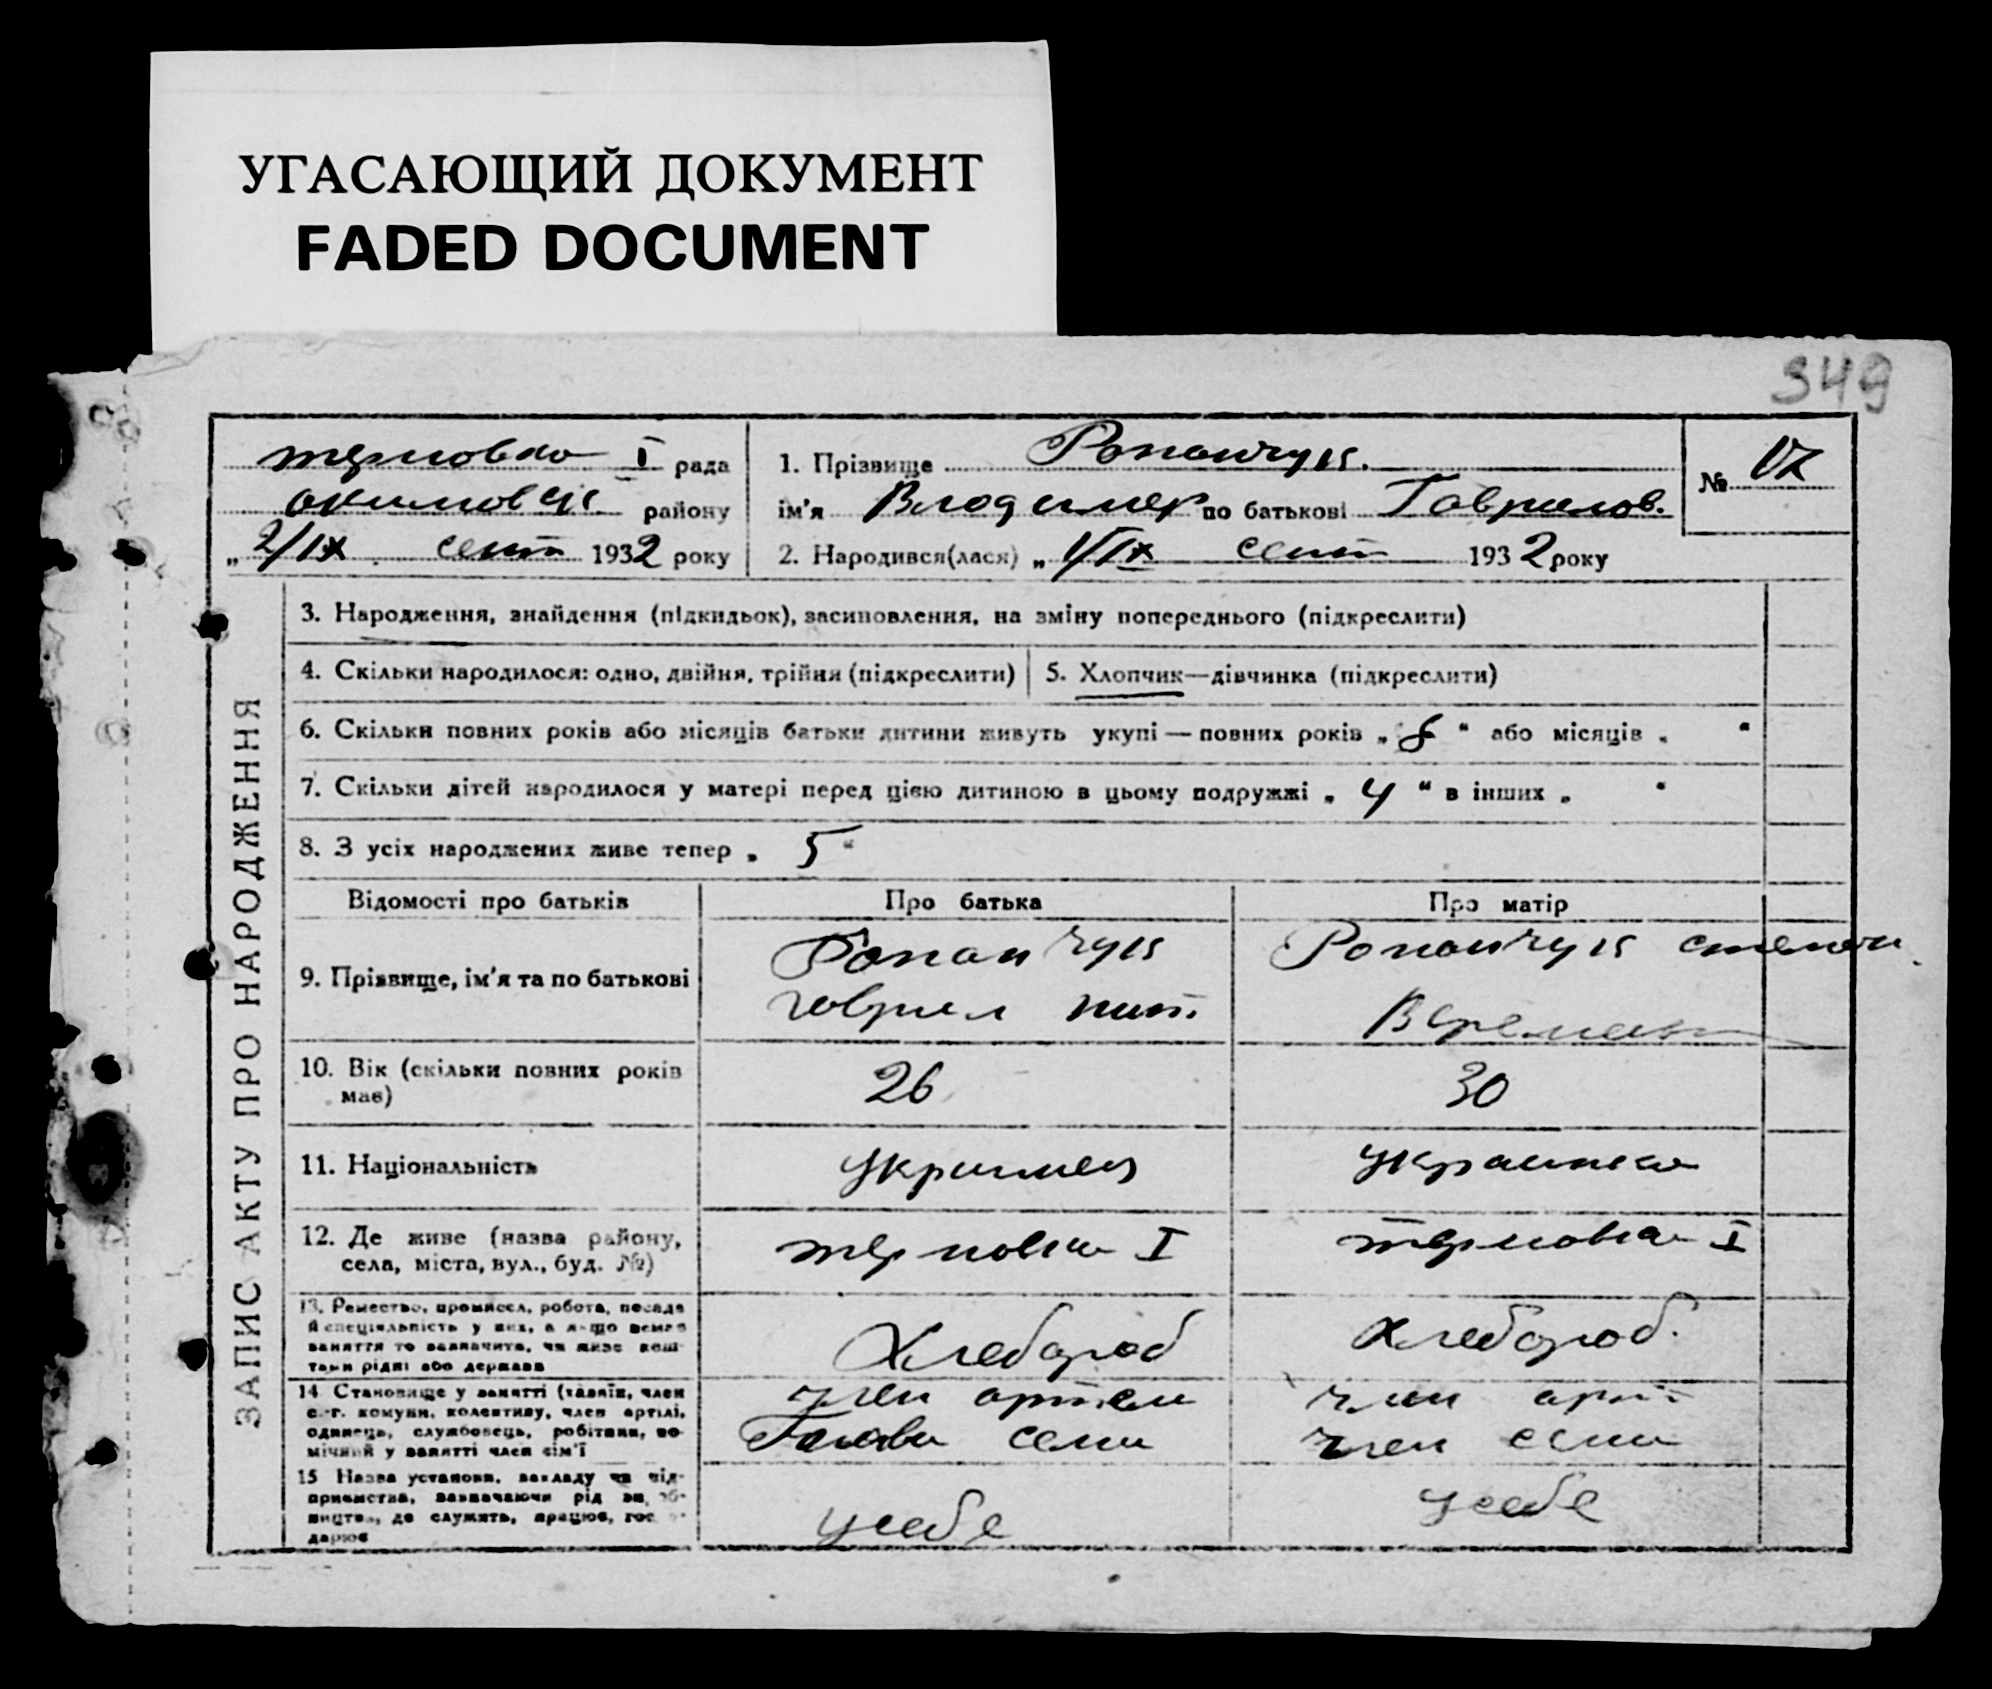 УГАСАЮЩИЙ ДОКУМЕНТ
FADED DOCUMENT
349
терновка I рада
району
„ 2/IX сент 1932 року
1. Прізвище Ропанчук.
ім'я Владимер по батькові Гаврилов.
2. Народився(лася) „ 1/IX сент 1932 року
№ 17
ЗАПИС АКТУ ПРО НАРОДЖЕННЯ
3. Народження, знайдення (підкидьок), засиновлення, на зміну попереднього (підкреслити)
4. Скільки народилося: одно, двійня, трійня (підкреслити)
5. Хлопчик—дівчинка (підкреслити)
6. Скільки повних років або місяців батьки дитини живуть укупі — повних років „ 8 “ або місяців „ “
7. Скільки дітей народилося у матері перед цією дитиною в цьому подружжі „ 4 “ в інших „ “
8. З усіх народжених живе тепер „ 5 “
Відомості про батьків
Про батька
Про матір
9. Прізвище, ім'я та по батькові
Ропанчук
гаврил
Ропанчук
10. Вік (скільки повних років
має)
26
30
11. Національність
украинка
12. Де живе (назва району,
села, міста, вул., буд. №)
терновка I
терновка I
13. Ремество, промисел, робота, посада
й спеціяльність у них, а якщо немає
заняття то зазначити, чи живе кош-
тами рідні або держави
Хлебороб
хлебороб.
14. Становище у занятті (хазяїн, член
с.-г. комуни, колективу, член артілі,
одинець, службовець, робітник, по-
мічний у занятті член сім'ї
член артели
Голова семи
член арт
член семи
15. Назва установи, закладу чи під-
приємства, зазначаючи рід ви об-
ництва, де служить, працює, гос о-
дарює
усебе
усебе